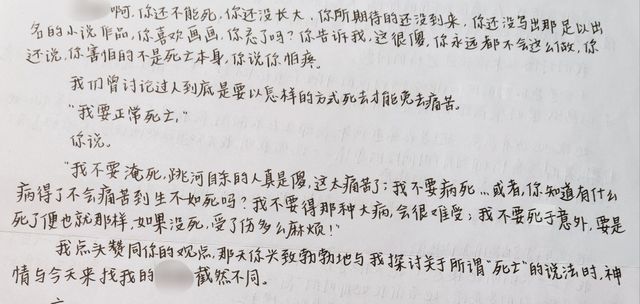 啊，你还不能死，你还没长大，你所期待的还没到来，你还没写出那足以出
名的小说作品，你喜欢画画，你忘了吗？你告诉我，这很傻，你永远都不会这么做，你
还说，你害怕的不是死亡本身，你说你怕疼。
我们曾讨论过人到底是要以怎样的方式死去才能免去痛苦。
“我要正常死亡，”
你说。
“我不要淹死，跳河自杀的人真是傻，这太痛苦了；我不要病死…或者，你知道有什么
病得了不会痛苦到生不如死吗？我不要得那种大病，会很难受；我不要死于意外，要是
死了便也就那样，如果没死，受了伤多么麻烦！”
我点头赞同你的观点，那天你兴致勃勃地与我探讨关于所谓“死亡”的说法时，神
情与今天来找我的 截然不同。